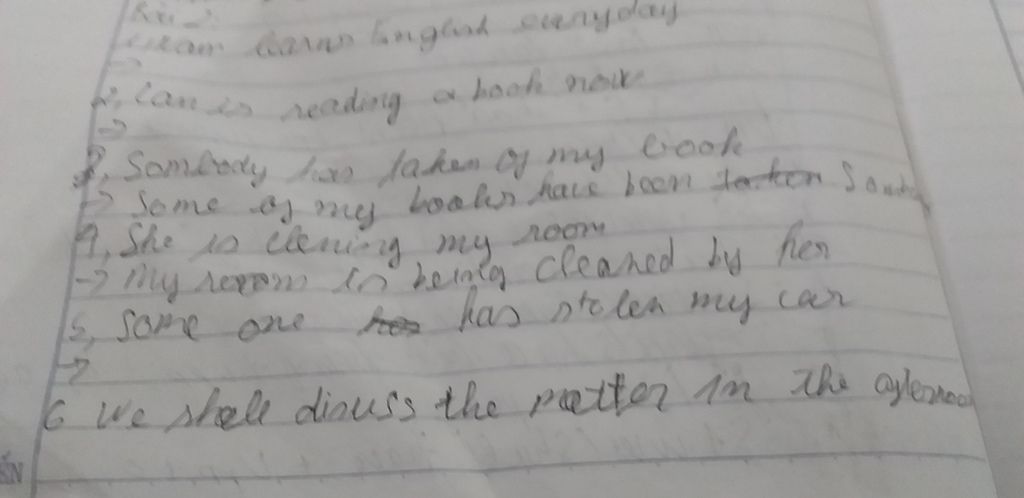 learns English everyday
->
2, Lan is reading a book now
->
3, Sombody has taken of my book
-> Some of my books have been taken
4, She is clening my room
-> my room is being cleaned by her
5, Some one has stolen my car
->
6 We shall disuss the matter in the afternoon